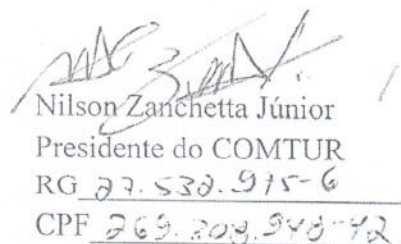 Nilson Zanchetta Júnior
Presidente do COMTUR
RG 27.532.915-6
CPF